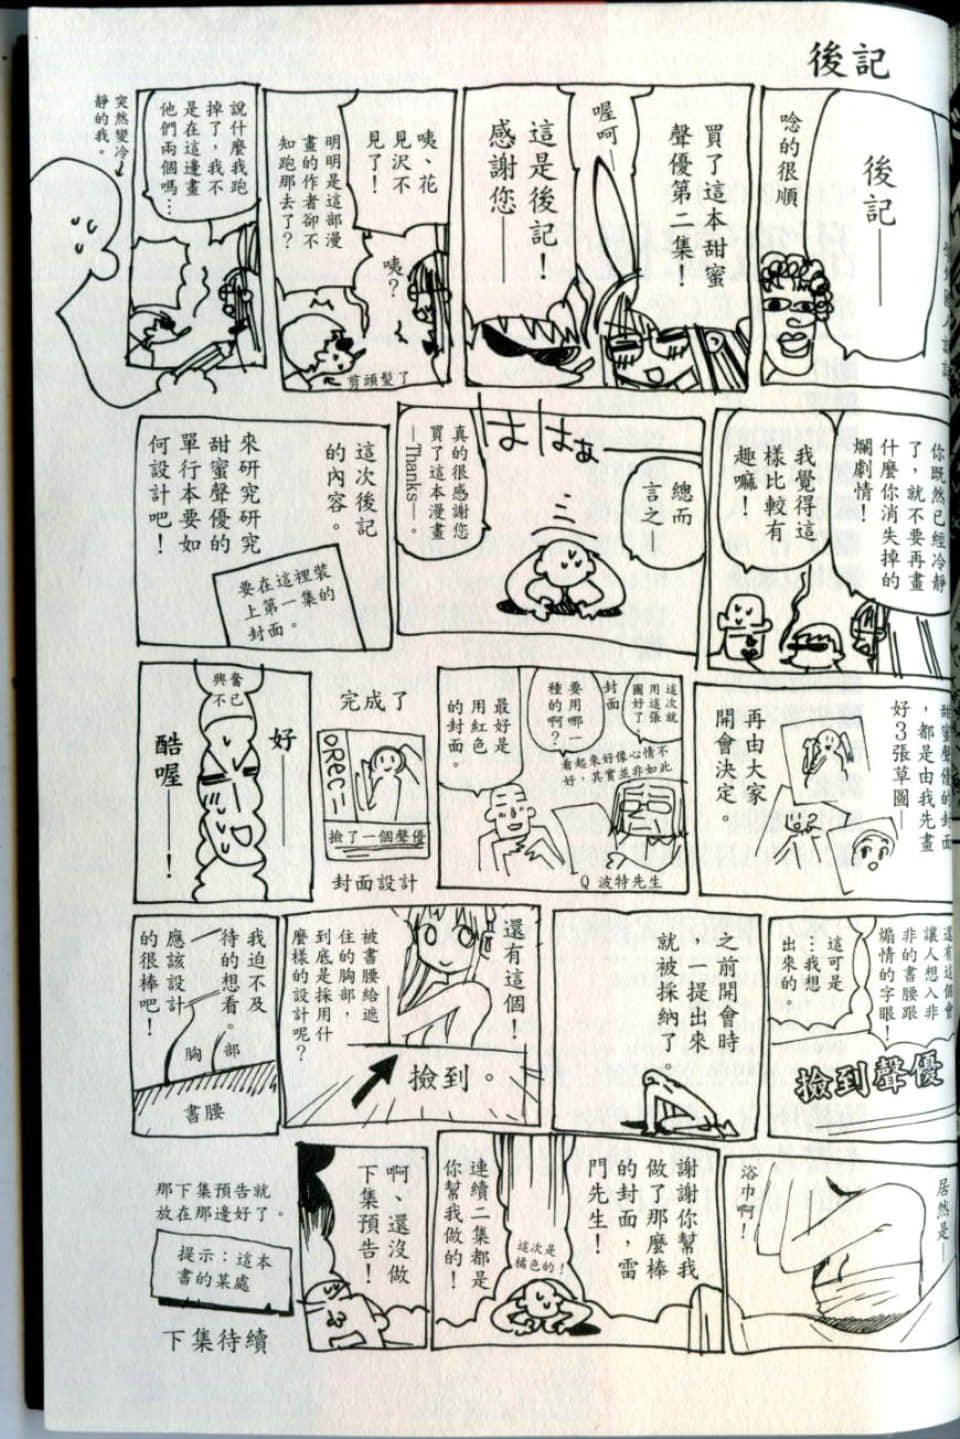 後記
後記——
唸的很順
買了這本甜蜜
聲優第二集！
喔呵——
這是後記！
感謝您——
咦、花
見沢不
見了！
明明是這部漫
畫的作者卻不
知跑那去了？
咦？
剪頭髮了
說什麼我跑
掉了，我不
是在這邊畫
他們兩個嗎…
突然變冷
靜的我。
你既然已經冷靜
了，就不要再畫
什麼你消失掉的
爛劇情！
我覺得這
樣比較有
趣嘛！
はぁはぁ
總而
言之
真的很感謝您
買了這本漫畫
—Thanks—。
這次後記
的內容。
來研究研究
甜蜜聲優的
單行本要如
何設計吧！
要在這裡裝
上第一集的
封面。
甜蜜聲優的封面
，都是由我先畫
好3張草圖—
再由大家
開會決定。
這次就
用這張
圖好了
封面
要用哪一
種的啊？
看起來好像心情不
好，其實並非如此
最好是
用紅色
的封面。
Q 波特先生
完成了
○REC=
撿了一個聲優
封面設計
興奮
不已
好——
酷喔——！
還有這個會
讓人想入非
非的書腰跟
煽情的字眼！
這可是
…我想
出來的。
撿到聲優
之前開會時
，一提出來
就被採納了。
還有這個！
被書腰給遮
住的胸部，
到底是採用什
麼樣的設計呢？
撿到。
我迫不及
待的想看。
應該設計
的很棒吧！
胸部
書腰
居然是—
浴巾啊！
謝謝你幫我
做了那麼棒
的封面，雷
門先生！
這次是
橘色的！
連續二集都是
你幫我做的！
啊、還沒做
下集預告！
那下集預告就
放在那邊好了。
提示：這本
書的某處
下集待續